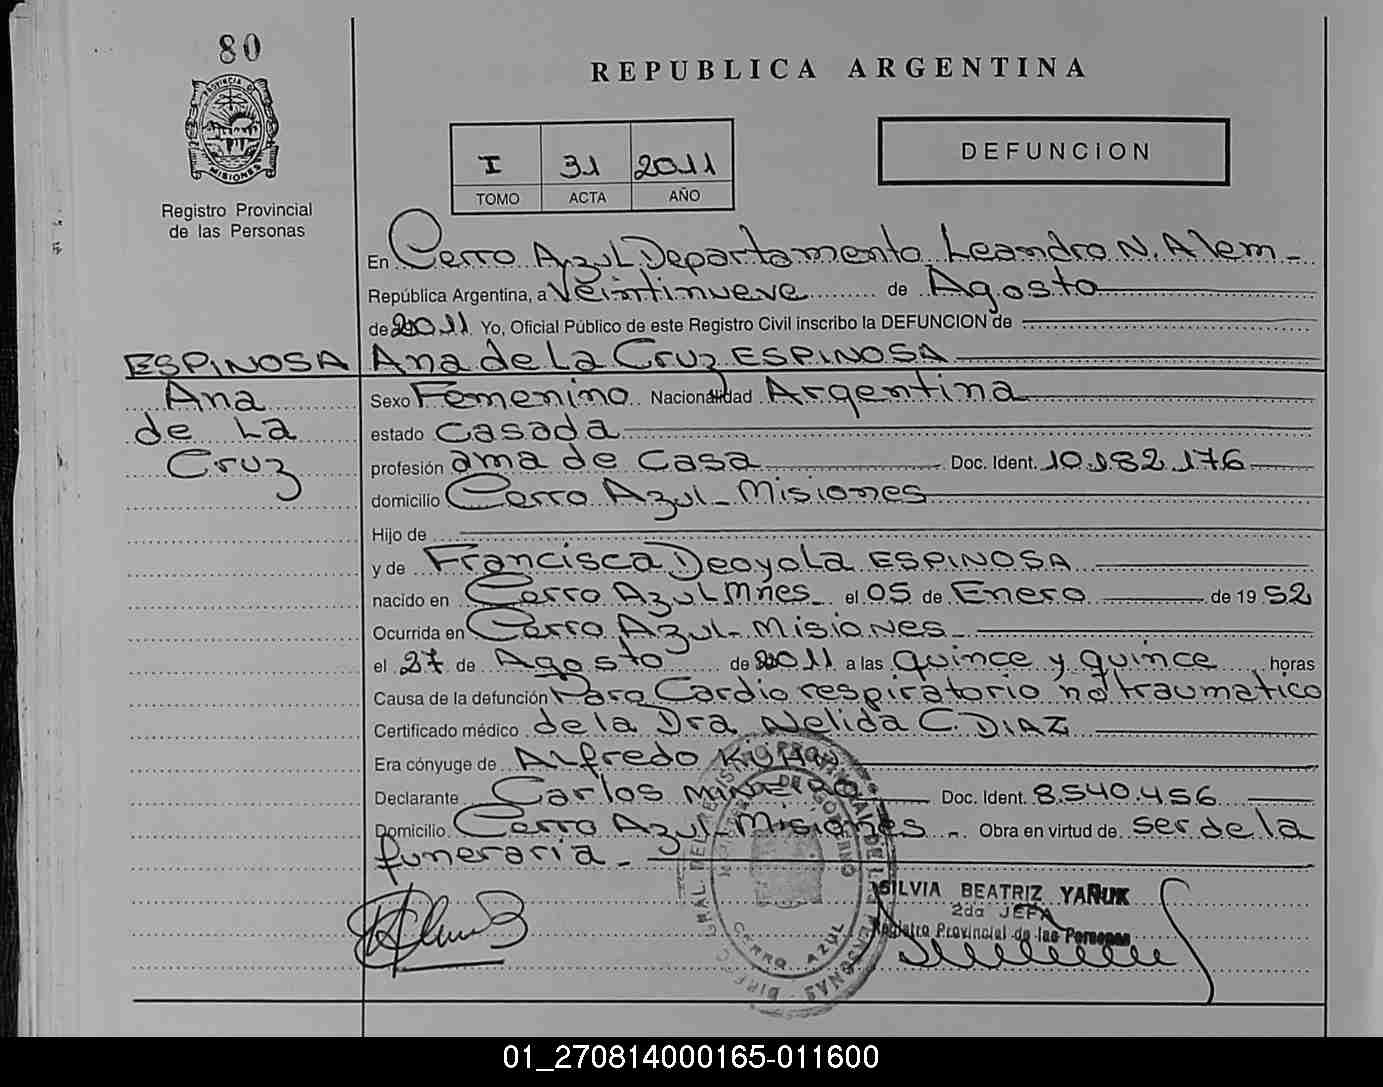 80
PROVINCIA DE
MISIONES
Registro Provincial
de las Personas
REPUBLICA ARGENTINA
I 31 2011
TOMO ACTA AÑO
DEFUNCION
En Cerro Azul Departamento Leandro N. Alem
República Argentina, a Veintinueve de Agosto
de 2011 Yo, Oficial Público de este Registro Civil inscribo la DEFUNCION de
ESPINOSA Ana de La Cruz ESPINOSA
Ana
de La
Cruz
Sexo Femenino Nacionalidad Argentina
estado casada
profesión ama de casa Doc. Ident. 10.182.176
domicilio Cerro Azul - Misiones
Hijo de
y de Francisca Deoyola ESPINOSA
nacido en Cerro Azul Mnes el 05 de Enero de 1952
Ocurrida en Cerro Azul - Misiones
el 27 de Agosto de 2011 a las quince y quince horas
Causa de la defunción Paro Cardio respiratorio no traumatico
Certificado médico de la Dra Nelida C. DIAZ
Era cónyuge de Alfredo
Declarante Carlos Doc. Ident. 8.540.456
Domicilio Cerro Azul - Misiones - Obra en virtud de ser de la
funeraria
CERRO AZUL
SILVIA BEATRIZ YAÑUK
2da JEFA
Registro Provincial de las Personas
01_270814000165-011600